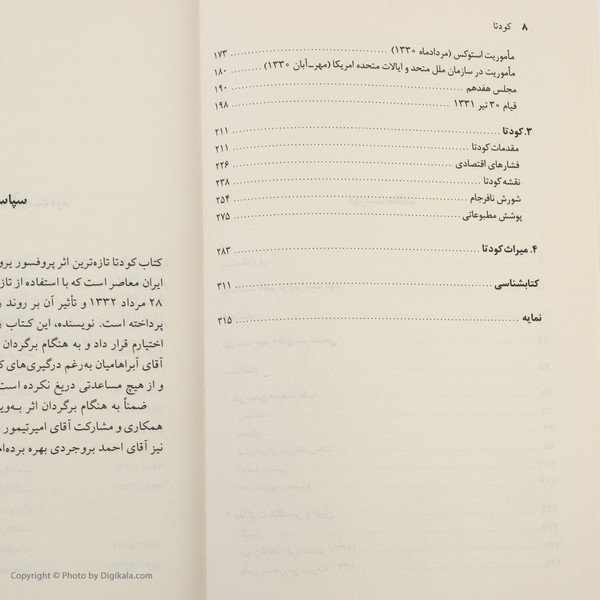 ۸ کودتا
مأموریت استوکس (مردادماه ۱۳۳۰) ۱۷۳
مأموریت در سازمان ملل متحد و ایالات متحده امریکا (مهر-آبان ۱۳۳۰) ۱۸۰
مجلس هفدهم ۱۹۰
قیام ۳۰ تیر ۱۳۳۱ ۱۹۸
۳. کودتا ۲۱۱
مقدمات کودتا ۲۱۱
فشارهای اقتصادی ۲۲۶
نقشه کودتا ۲۳۸
شورش نافرجام ۲۵۴
پوشش مطبوعاتی ۲۷۵
۴. میراث کودتا ۲۸۳
کتابشناسی ۳۱۱
نمایه ۳۱۵
کتاب کودتا تازه‌ترین اثر پروفسور
ایران معاصر است که با استفاده از
۲۸ مرداد ۱۳۳۲ و تأثیر آن بر روند
پرداخته است. نویسنده، این کتاب
اختیارم قرار داد و به هنگام برگردان
آقای آبراهامیان به‌رغم درگیری‌های
و از هیچ مساعدتی دریغ نکرده است
ضمناً به هنگام برگردان اثر
همکاری و مشارکت آقای امیرتیمور
نیز آقای احمد بروجردی بهره
Copyright © Photo by Digikala.com